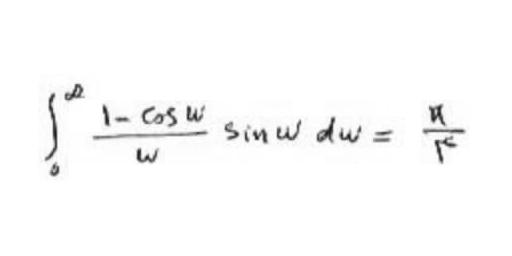 ∫₀^∞ (1 - cos w)/w sin w dw = π/۴